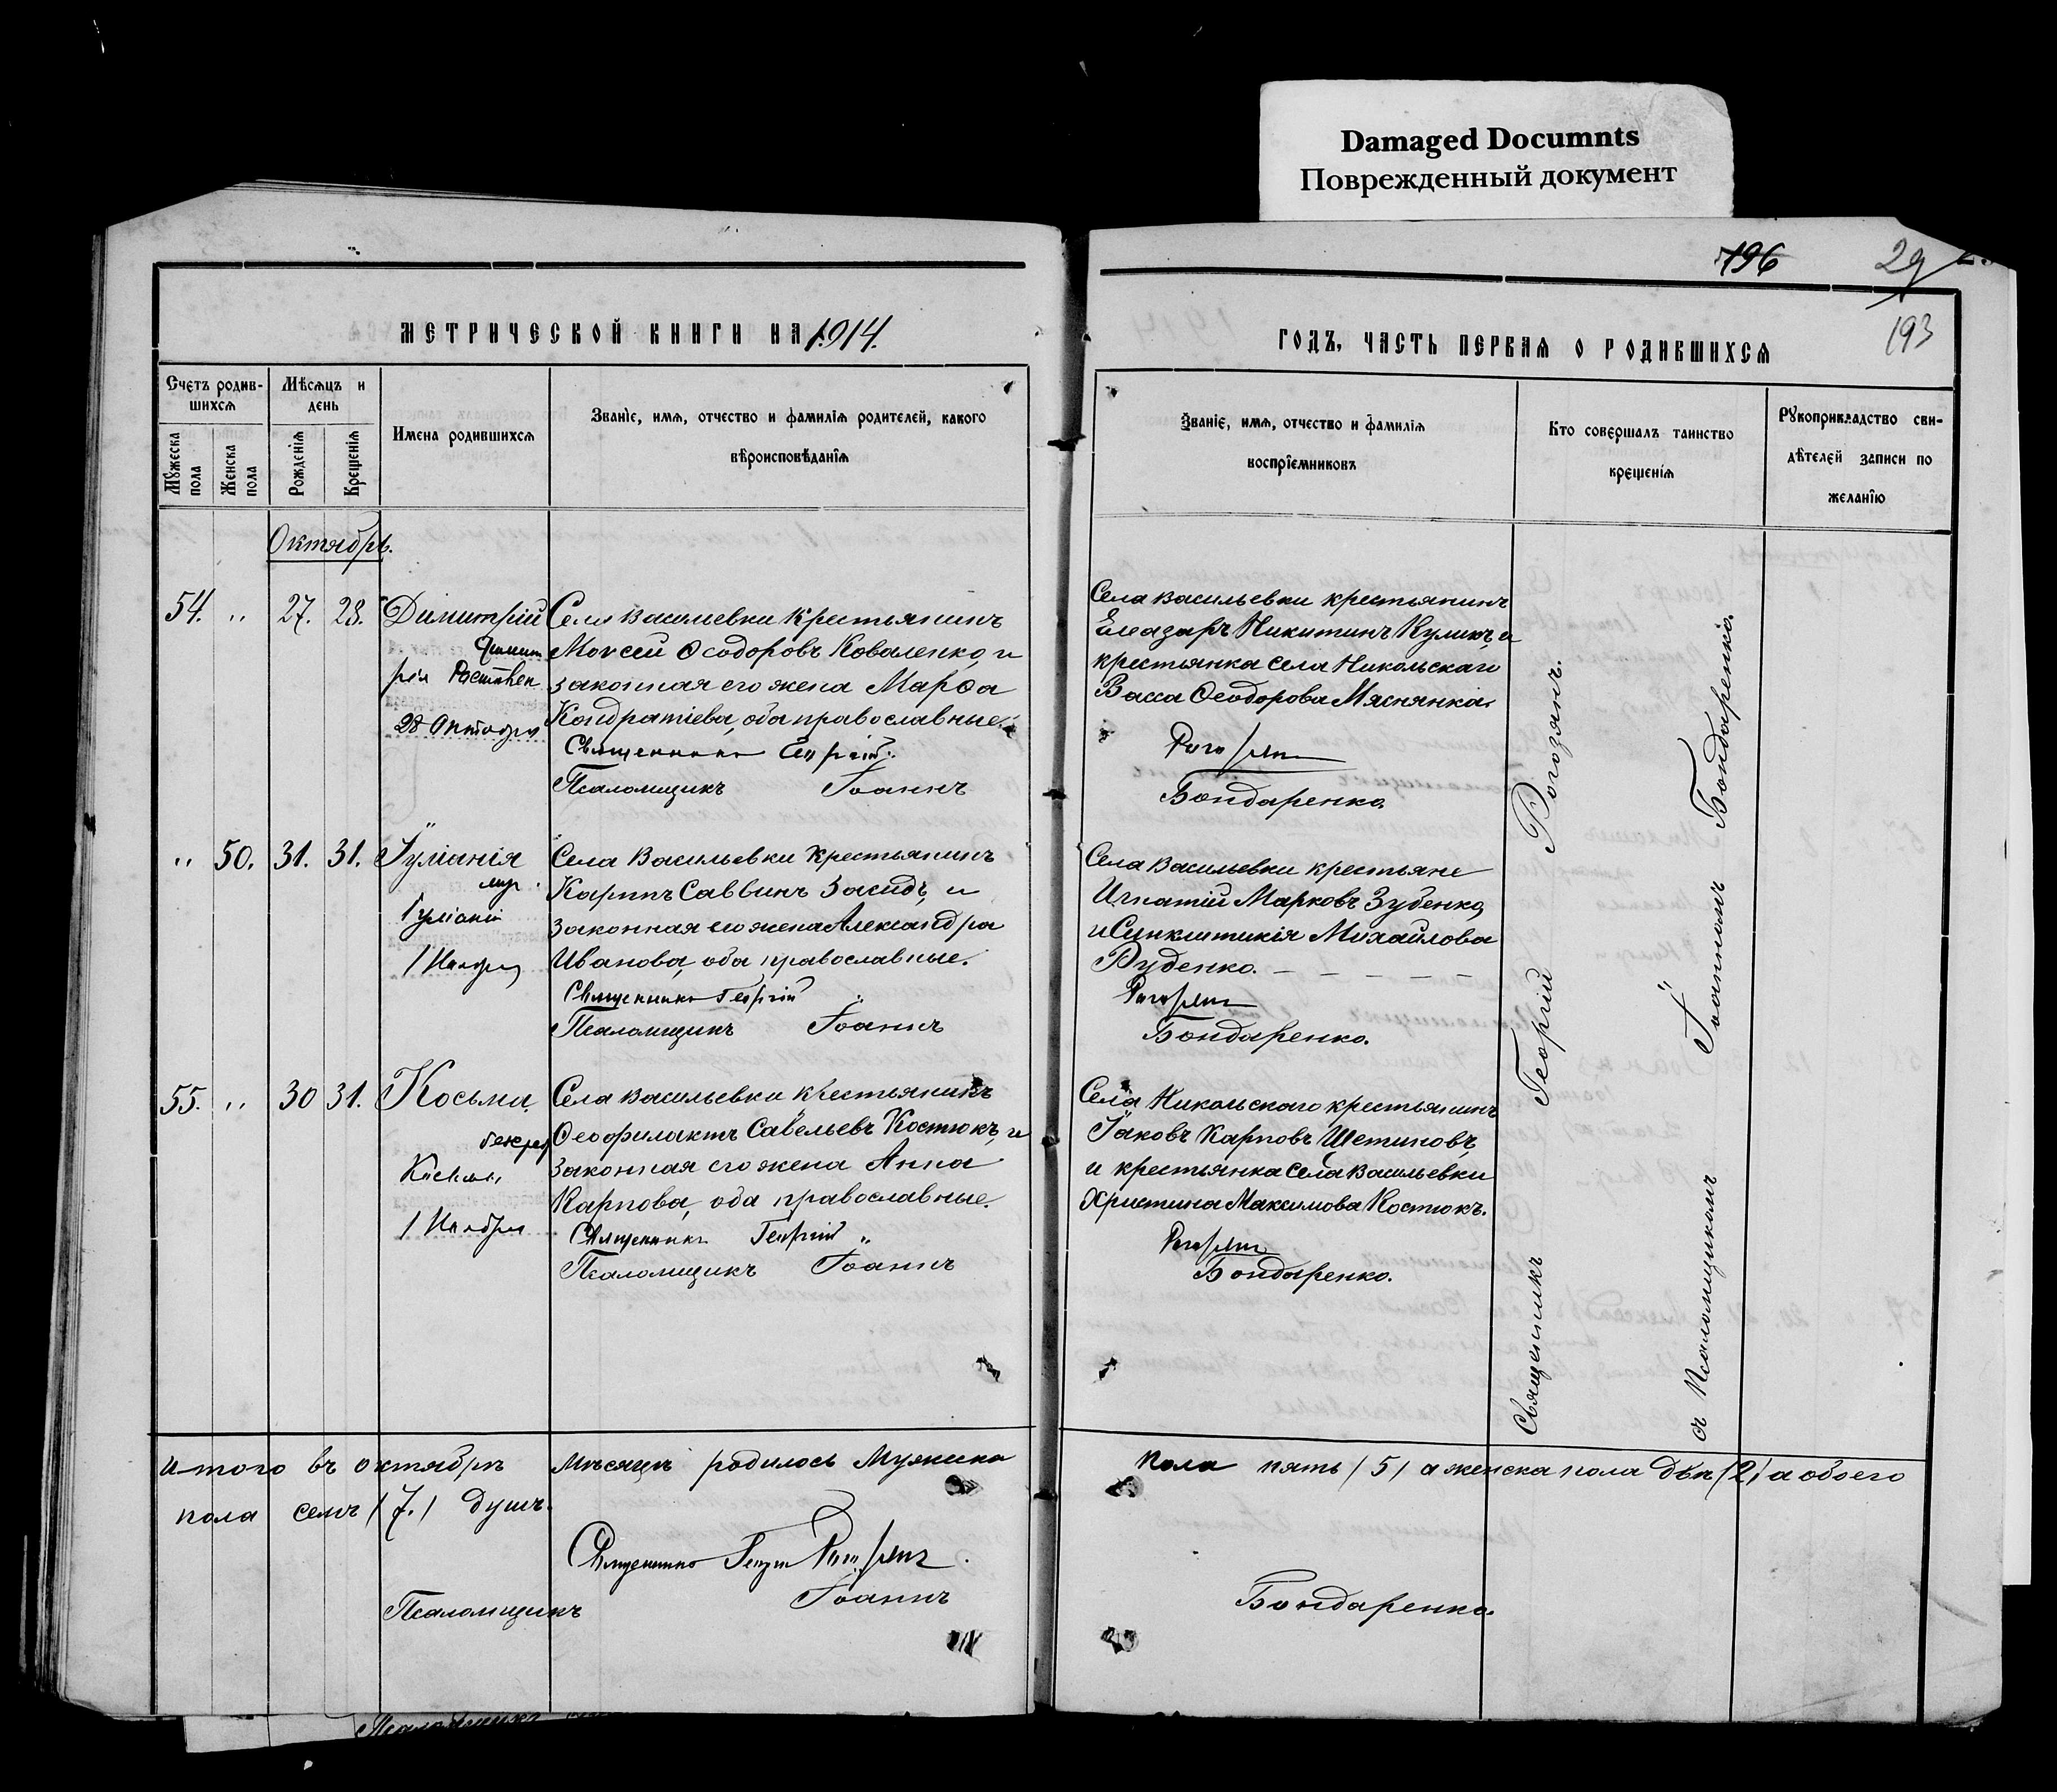 Damaged Documnts
Поврежденный документ
196
29
193
МЕТРИЧЕСКОЙ КНИГИ НА 1914.
Счетъ родив-
шихся
Мѣсяцъ и
день
Имена родившихся
Званіе, имя, отчество и фамилія родителей, какого
вѣроисповѣданія
Мужеска
пола
Женска
пола
Рожденія
Крещенія
Октябрь.
54. „ 27. 28. Димитрій
28 Октября
Села Васильевки крестьянинъ
Моѵсей Ѳеодоровъ Коваленко, и
законная его жена Марѳа
Кондратіева, оба православные.
Священникъ Георгій
Псаломщикъ Іоаннъ
„ 50. 31. 31. Іуліанія
муч.
Іуліаніи
1 Ноября
Села Васильевки крестьянинъ
Карпъ Саввинъ Засидъ, и
законная его жена Александра
Иванова, оба православные.
Священникъ Георгій
Псаломщикъ Іоаннъ
55. „ 30 31. Косьма.
безсреб
Косьмы
1 Ноября
Села Васильевки крестьянинъ
Ѳеофилактъ Савельевъ Костюкъ, и
законная его жена Анна
Карпова, оба православные.
Священникъ Георгій „
Псаломщикъ Іоаннъ
Итого въ октябрѣ мѣсяцѣ родилось Мужеска
пола семь (7.) душъ.
Священникъ Георгій Рогозянъ.
Псаломщикъ Іоаннъ
ГОДЪ, ЧАСТЬ ПЕРВАЯ О РОДИВШИХСЯ
Званіе, имя, отчество и фамилія
воспріемниковъ
Кто совершалъ таинство
крещенія
Рукоприкладство сви-
дѣтелей записи по
желанію
Села Васильевки крестьянинъ
Елеазаръ Никитинъ Куликъ, и
крестьянка села Никольскаго
Васса Ѳеодорова Мяснянкіа.
Рогозянъ
Бондаренко.
Села Васильевки крестьяне
Игнатій Марковъ Зубенко,
и Синклитикія Михайлова
Руденко. – – – – –
Рогозянъ
Бондаренко.
Села Никольскаго крестьянинъ
Іаковъ Карповъ Щетиновъ,
и крестьянка села Васильевки
Христина Максимова Костюкъ.
Рогозянъ
Бондаренко.
Священникъ Георгій Рогозянъ.
съ Псаломщикомъ Іоанномъ Бондаренко.
пола пять (5) а женска пола двѣ (2) а обоего
Бондаренко.